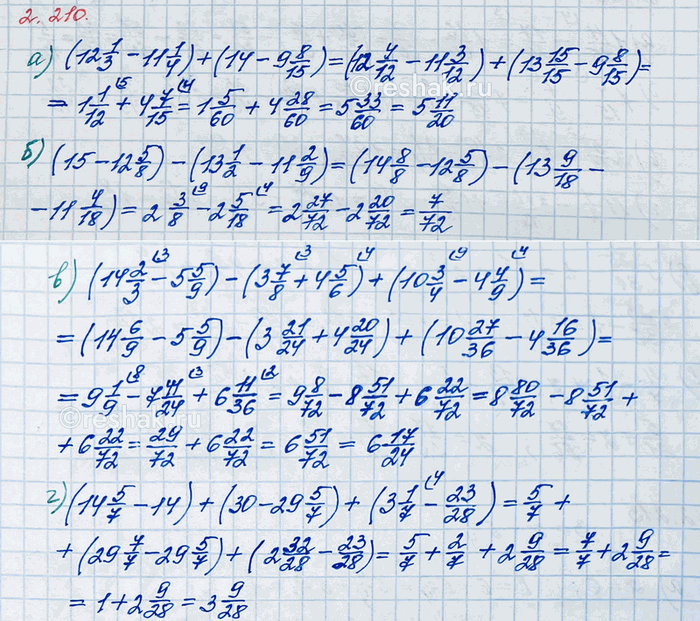 2.210.
а) (12 1/3 - 11 1/4) + (14 - 9 8/15) = (12 4/12 - 11 3/12) + (13 15/15 - 9 8/15) =
= 1 1/12 (5 + 4 7/15 (4 = 1 5/60 + 4 28/60 = 5 33/60 = 5 11/20
б) (15 - 12 5/8) - (13 1/2 - 11 2/9) = (14 8/8 - 12 5/8) - (13 9/18 -
- 11 4/18) = 2 3/8 (9 - 2 5/18 (4 = 2 27/72 - 2 20/72 = 7/72
в) (14 2/3 (3 - 5 5/9) - (3 7/8 (3 + 4 5/6 (4) + (10 3/4 (9 - 4 4/9 (4) =
= (14 6/9 - 5 5/9) - (3 21/24 + 4 20/24) + (10 27/36 - 4 16/36) =
= 9 1/9 (8 - 7 41/24 (3 + 6 11/36 (2 = 9 8/72 - 8 51/72 + 6 22/72 = 8 80/72 - 8 51/72 +
+ 6 22/72 = 29/72 + 6 22/72 = 6 51/72 = 6 17/24
г) (14 5/7 - 14) + (30 - 29 5/7) + (3 1/7 (4 - 23/28) = 5/7 +
+ (29 7/7 - 29 5/7) + (2 32/28 - 23/28) = 5/7 + 2/7 + 2 9/28 = 7/7 + 2 9/28 =
= 1 + 2 9/28 = 3 9/28
© reshak.ru
© reshak.ru